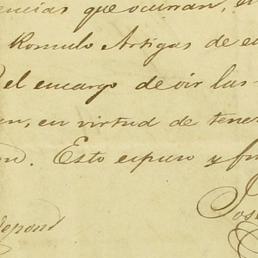 encias que ocurran, en
Romulo Artigas de e
el encargo de oir las
en, en virtud de tener
Esto espuso y fir
Jos